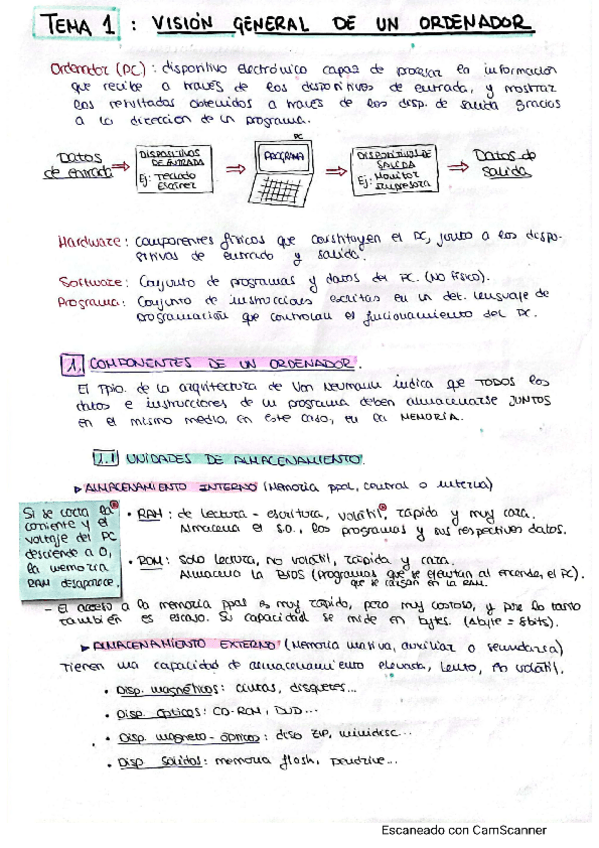 TEMA 1 : VISIÓN GENERAL DE UN ORDENADOR
Ordenador (PC) : dispositivo electrónico capaz de procesar la información
que recibe a través de los dispositivos de entrada, y mostrar
los resultados obtenidos a través de los disp. de salida gracias
a la dirección de un programa.
PC
Datos de entrada
DISPOSITIVOS DE ENTRADA
Ej: Teclado
Escáner
PROGRAMA
DISPOSITIVOS DE SALIDA
Ej: Monitor
Impresora
Datos de salida
Hardware: componentes físicos que constituyen el PC, junto a los dispo-
sitivos de entrada y salida.
Software: Conjunto de programas y datos del PC. (NO físico).
Programa: Conjunto de instrucciones escritas en un det. lenguaje de
programación que controlan el funcionamiento del PC.
1. COMPONENTES DE UN ORDENADOR.
El Ppio. de la arquitectura de Von Neumann indica que TODOS los
datos e instrucciones de un programa deben almacenarse JUNTOS
en el mismo medio, en este caso, en la MEMORIA.
1.1 UNIDADES DE ALMACENAMIENTO.
▶ ALMACENAMIENTO INTERNO (Memoria ppal, central o interna)
Si se corta la
corriente y el
voltaje del PC
desciende a 0,
la memoria
RAM desaparece.
• RAM: de lectura - escritura, volátil, rápida y muy cara.
Almacena el S.O., los programas y sus respectivos datos.
• ROM: solo lectura, no volátil, rápida y cara.
Almacena la BIOS (programas que se ejecutan al encender el PC).
que se cargan en la RAM.
- El acceso a la memoria ppal es muy rápido, pero muy costoso, y por lo tanto
también es escaso. Su capacidad se mide en bytes. (1byte = 8bits).
▶ ALMACENAMIENTO EXTERNO (Memoria masiva, auxiliar o secundaria)
Tienen una capacidad de almacenamiento elevada, lento, no volátil.
• Disp. magnéticos: cintas, disquetes...
• Disp. ópticos: CD-ROM, DVD...
• Disp. magneto-ópticos: disco ZIP, minidisc...
• Disp sólidos: memoria flash, pendrive...
Escaneado con CamScanner